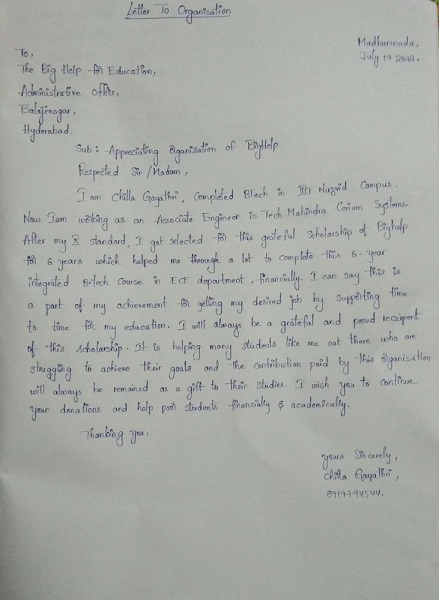 Letter To Organisation
Madhurwada,
July 19
To,
The Big Help for Education,
Administrative Office,
Balajinagar,
Hyderabad.
Sub: Appreciating Organisation of BigHelp
Respected Sir/Madam,
I am Chilla Gayathri, completed BTech in IIIT Nuzvid Campus.
Now Iam working as an Associate Engineer in Tech Mahindra Cerium Systems.
After my X standard, I got selected for this grateful Scholarship of Bighelp
for 6 years which helped me through a lot to complete this 6-year
integrated B.tech Course in ECE department, financially. I can say this is
a part of my achievement for getting my desired job by supporting time
to time for my education. I will always be a grateful and proud recepient
of this scholarship. It is helping many students like me out there who are
struggling to achieve their goals and the contribution paid by this organisation
will always be remained as a gift to their studies. I wish you to continue
your donations and help poor students financially & academically.
Thanking you.
Yours Sincerely,
Chilla Gayathri,